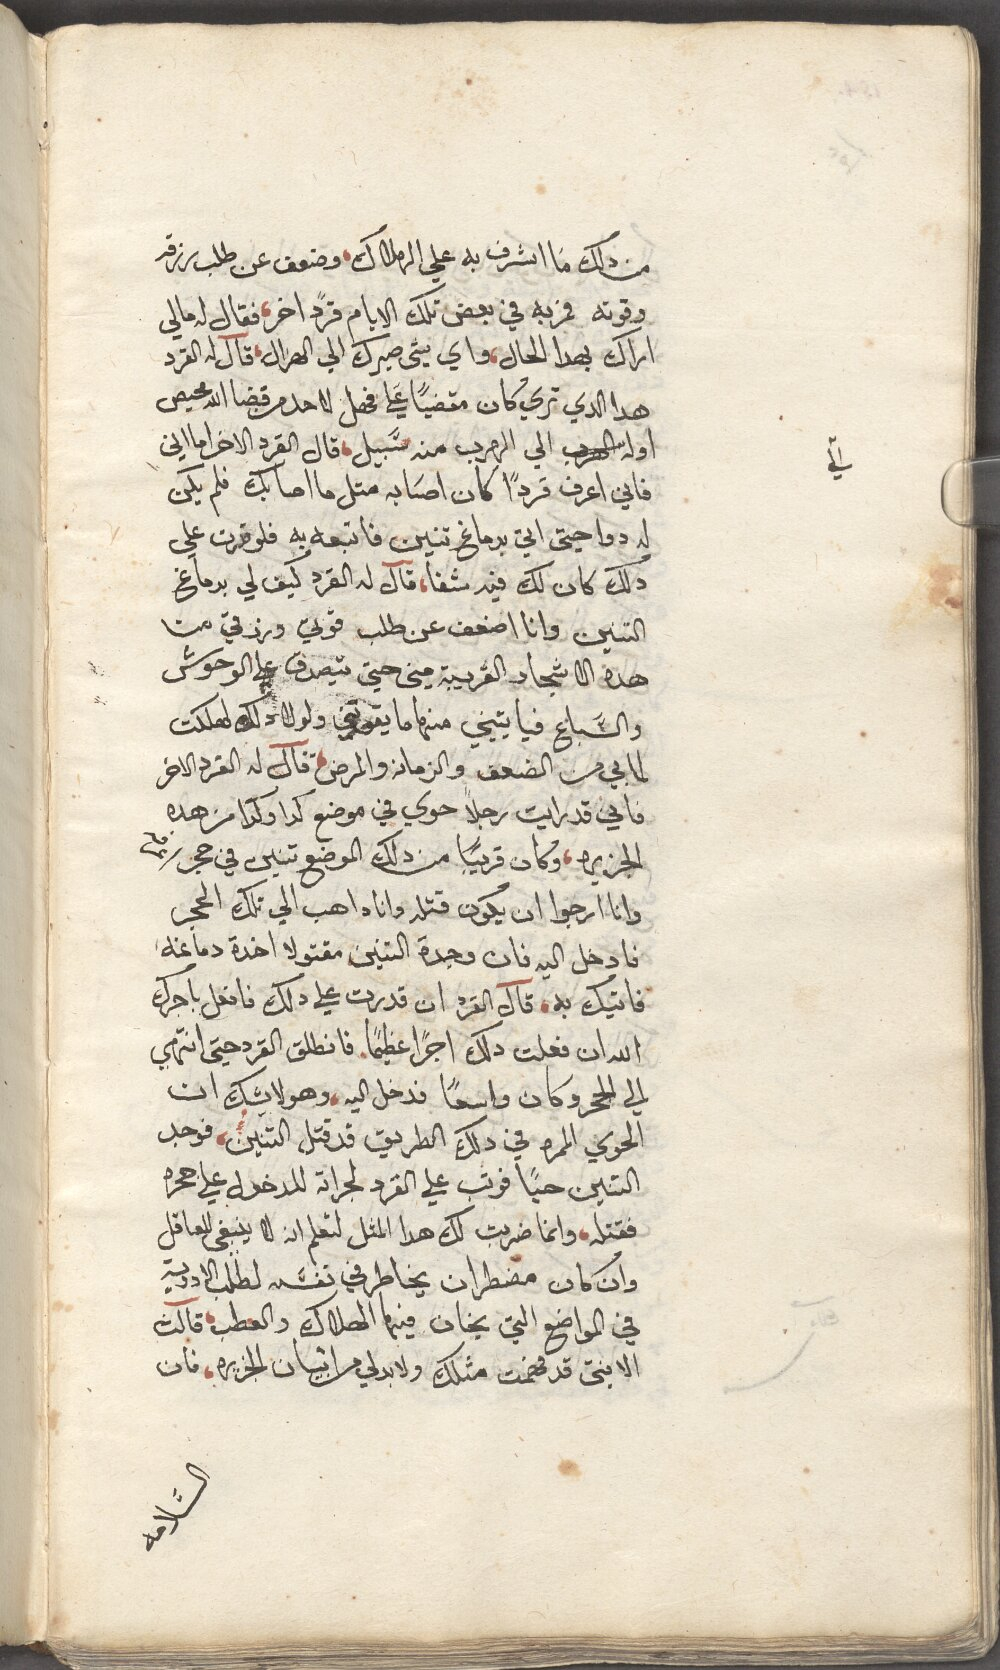 من دلك ما اشرف به علي الهلاك، وضعف عن طلب رزقه
وقوته فمر به في بعض تلك الايام قردً اخر، فقال له مالي
اراك بهدا الحال، واي شي صيرك الي الهزال، قال له القرد
هدا الدي تري كان مقضيًا عَلي فهل لاحد من قضا الله محيص
اوله الي الهرب منه سَّبيل، قال القرد الاخر اما انى
اني
فاني اعرف قردًا كان اصَابه متل ما اصابك فلم يكن
له دوا حيتي اتي بدماغ تنين فاتبعه به فلو قدرت علي
دلك كان لك فيه شفا، قال له القرد كيف لي بدماغ
التنين وانا اضعف عن طلب قوتي ورزقي من
هده الاشجار القريبة مني حيتي تتصدق علي الوحوش
والسَّباع فياتيني منهم ما يقوتني ولولا دلك لهلكت
لما بي من الضعف والزمانه والمرض، فقال له القرد الاخر
فاني قد رايت رجلاً حوي في موضع كدا وكدا من هده
الجزيره، وكان قريبًا من دلك الموضع تنين في حجر
وانا ارجوا ان يكون قتله وانا داهب الي تلك الحجر
فادخل اليه فان وجدة التنين مقتولا اخدة دماغه
فاتيك به، قال القرد ان قدرت علي دلك فافعل ياجرك
الله ان فعلت دلك اجرًا عظيمًا، فانطلق القرد حيتي انتهي
الي الحجر وكان واسعًا فدخل اليه، وهو لا يشك ان
الحوي المره في دلك الطريق قد قتل التنين، فوجد
التنين حيًا فوتب علي القرد لجراته للدخول علي حجره
فقتله، وانما ضربت لك هدا المثل لتعلم انه لا ينبغي للعاقل
وان كان مضطر ان يخاطر في نفسَه لطلب الادوية
في المواضع التي يخاف فيها الهلاك والعطب، قالت
الابنة قد فهمت مثلك ولا بد لي من اتيان الجزيره، فان
السَّلامه